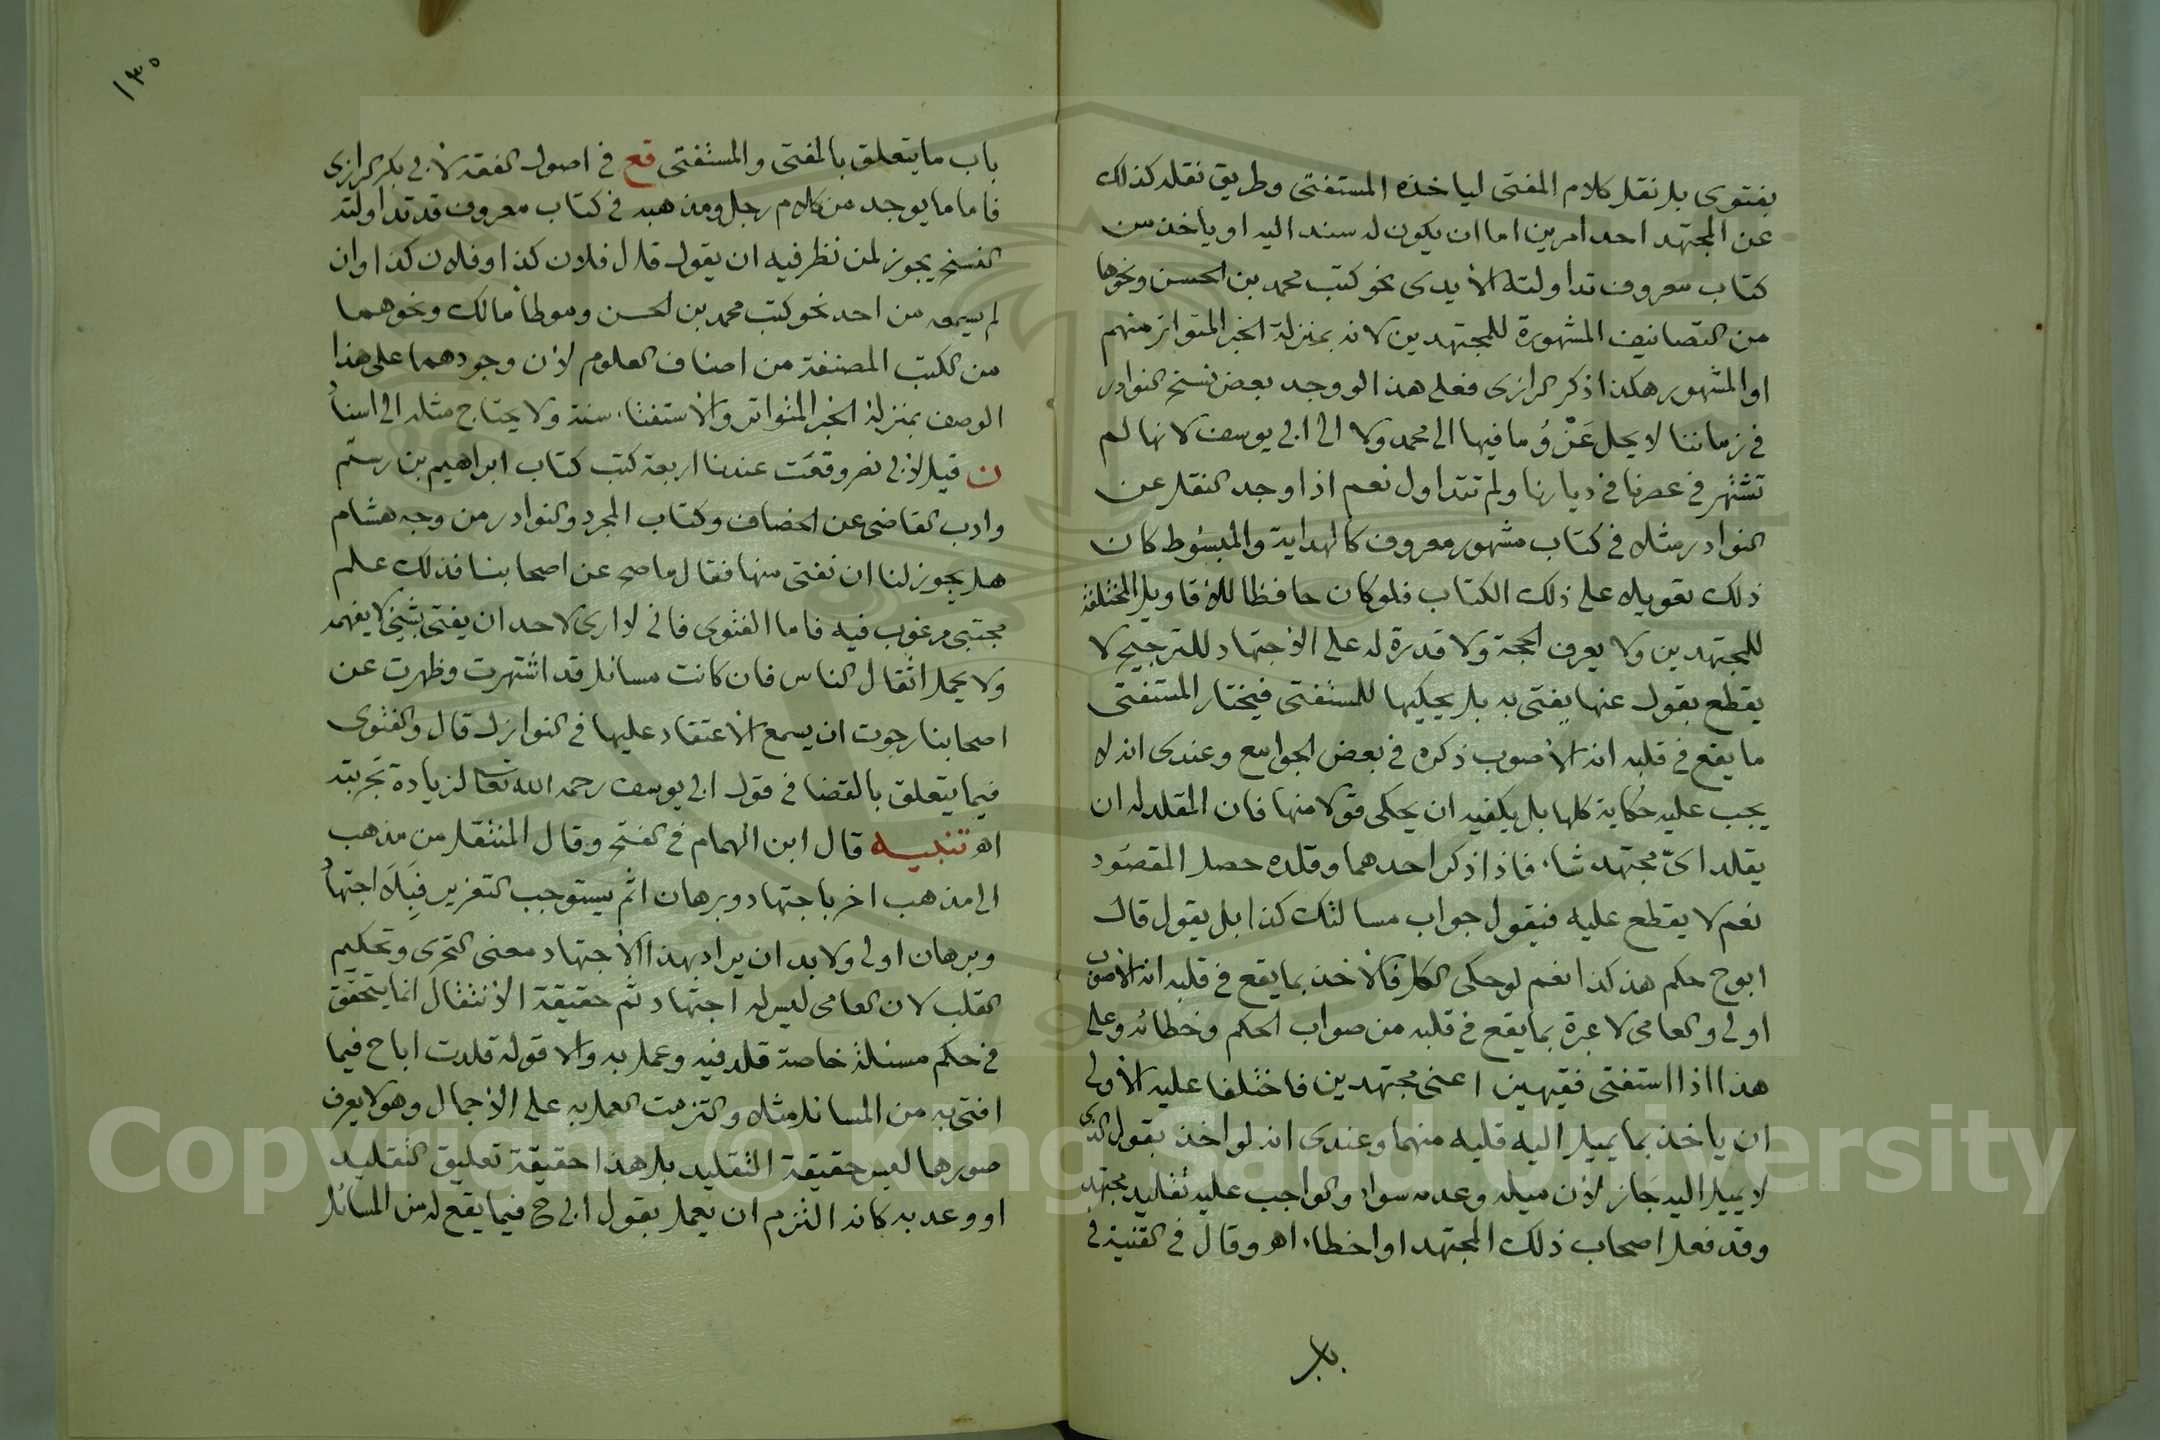 بفتوى بل نقل كلام المفتى لياخذه المستفتى وطريق نقله كذلك
عن المجتهد احد امرين اما ان يكون له سند اليه او ياخذ من
كتاب معروف تداولته الأيدى نحو كتب محمد بن الحسن ونحوها
من التصانيف المشهورة للمجتهدين لانه بمنزلة الخبر المتواتر منهم
او المشهور هكذا ذكر الرازى فعلى هذا لو وجد بعض نسخ النوادر
فى زماننا لا يحل عَزْوُ ما فيها الى محمد ولا الى ابى يوسف لانها لم
تشتهر فى عصرنا فى ديارنا ولم تتداول نعم اذا وجد النقل عن
النوادر مثلا فى كتاب مشهور معروف كالهداية والمبسُوط كان
ذلك تعويلا على ذلك الكتاب فلو كان حافظا للأقاويل المختلفة
للمجتهدين ولا يعرف الحجة ولا قدرة له على الأجتهاد للترجيح لا
يقطع بقول عنها يفتى به بل يحكيها للمستفتى فيختار المستفتى
ما يقع فى قلبه انه الأصوب ذكره فى بعض الجوامع وعندى انه لا
يجب عليه حكاية كلها بل يكفيه ان يحكى قولا منها فان المقلد له ان
يقلد اىّ مجتهد شاء فاذا ذكر احدهما وقلده حصل المقصُود
نعم لا يقطع عليه فيقول جواب مسالتك كذا بل يقول قال
ابو ح حكم هذ كذا نعم لو حكى الكل فالأخذ بما يقع فى قلبه انه الأصوب
اولى والعامى لا عبرة بما يقع فى قلبه من صواب الحكم وخطائه وعلى
هذا اذا استفتى فقيهين اعنى مجتهدين فاختلفا عليه الأولى
ان ياخذ بما يميل اليه قلبه منهما وعندى انه لو اخذ بقول الذى
لا يميل اليه جَاز لأن ميله وعدمه سواء والواجب عليه تقليد مجتهد
وقد فعل اصحاب ذلك المجتهد او اخطاء اهـ وقال فى القنية فى
بلر
١٣٥
باب ما يتعلق بالمفتى والمستفتى قع فى اصول الفقه لأبى بكر الرازى
فاما ما يوجد من كلام رجل ومذهبه فى كتاب معروف قد تداولته
النسخ يجوز لمن نظر فيه ان يقول قال فلان كذا وفلان كذا وان
لم يسمعه من احد نحو كتب محمد بن الحسن وموطأ مالك ونحوهما
من الكتب المصنفة من اصناف العلوم لأن وجودهما على هذا
الوصف بمنزلة الخبر المتواتر والأستفتاء سنة ولا يحتاج مثله الى اسناد
ن قيل لأبى نصر وقعَت عندنا اربعة كتب كتاب ابراهيم بن رستم
وادب القاضى عن الخصاف وكتاب المجرد والنوادر من وجه هشام
هل يجوز لنا ان نفتى منها فقال ما صح عن اصحابنا فذلك علم
مجتبى مرغوب فيه فاما الفتوى فانى لا ارى لاحد ان يفتى بشئ لا يفهمه
ولا يحمل اثقال الناس فان كانت مسائل قد اشتهرت وظهرت عن
اصحابنا رجوت ان يسمع الأعتقاد عليها فى النوازل قال والفتوى
فيما يتعلق بالقضا فى قول ابى يوسف رحمه الله تعالى لزيادة تجربته
اهـ تنبيه قال ابن الهمام فى الفتح وقال المنتقل من مذهب
الى مذهب اخر باجتهاد وبرهان اثم يستوجب التعزير فبِلَا اجتهاد
وبرهان اولى ولا بد ان يراد بهذا الأجتهاد معنى التحرى وتحكيم
القلب لان العامى ليس له اجتهاد ثم حقيقة الأنتقال انما يتحقق
فى حكم مسئلة خاصة قلد فيه وعمل به والا قوله قلدت اباح فيما
افتى به من المسائل مثلا والتزمت العمل به على الأجمال وهو لا يعرف
صورها ليس حقيقة التقليد بل هذا حقيقة تعليق التقليد
او وعد به كانه التزم ان يعمل بقول ابى ح فيما يقع له من المسائل
Copyright © King Saud University